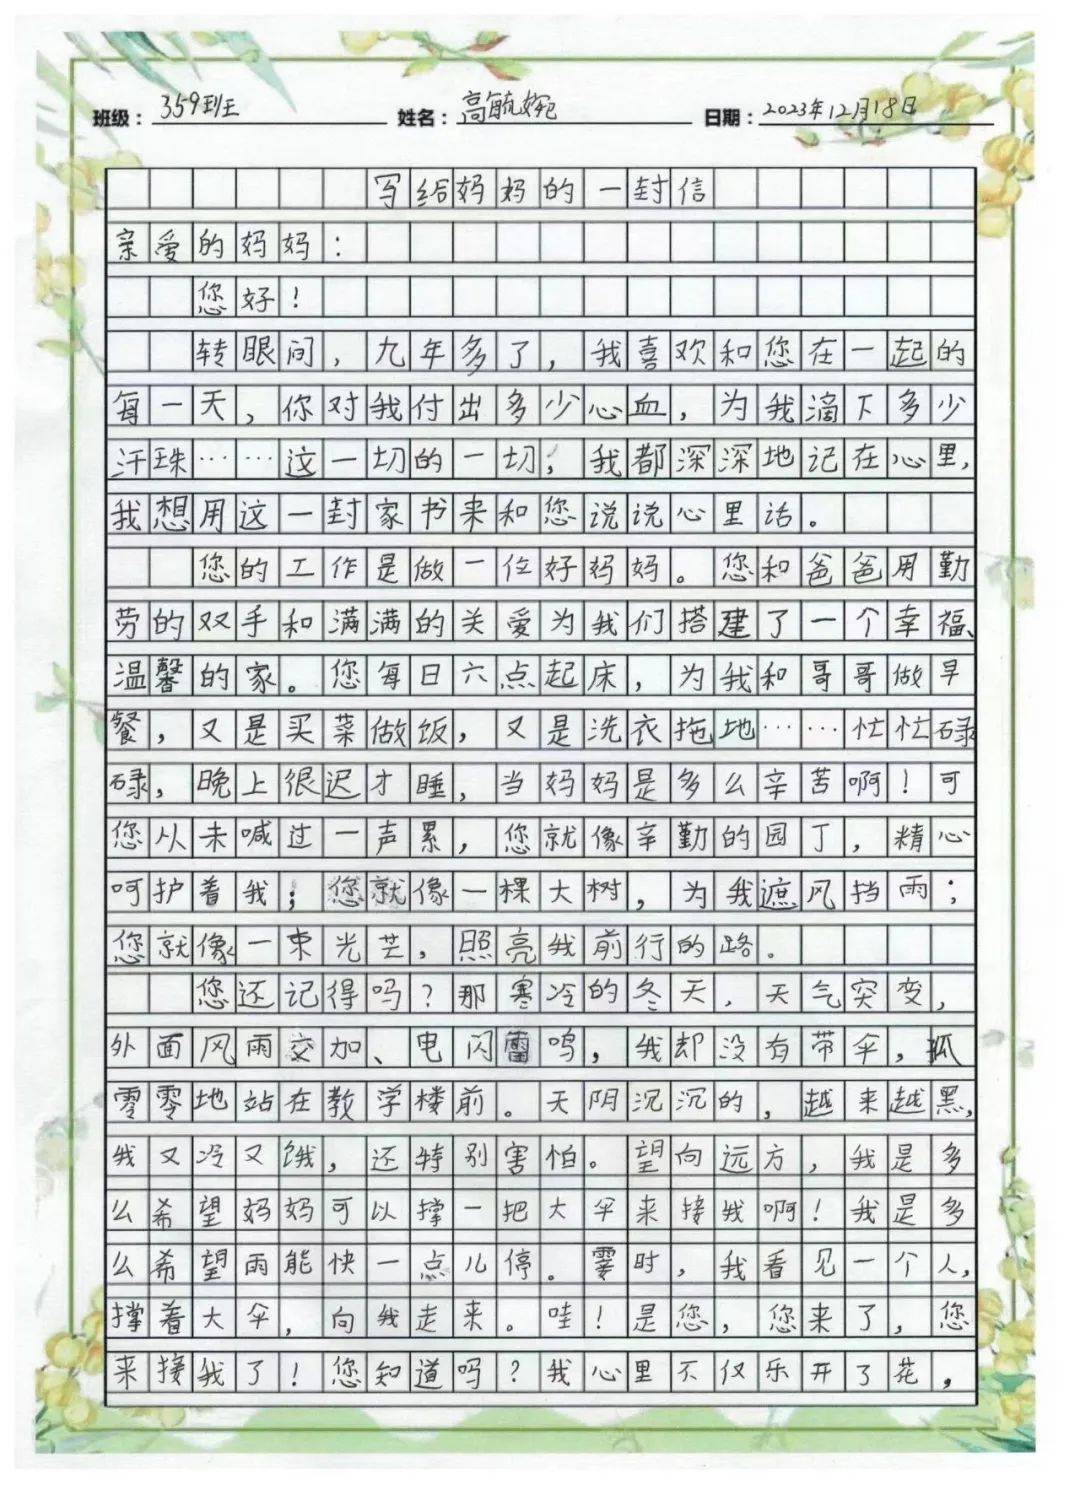 班级：359班 姓名：高毓婉 日期：2023年12月18日
写给妈妈的一封信
亲爱的妈妈：
您好！
转眼间，九年多了，我喜欢和您在一起的
每一天，你对我付出多少心血，为我滴下多少
汗珠……这一切的一切，我都深深地记在心里，
我想用这一封家书来和您说说心里话。
您的工作是做一位好妈妈。您和爸爸用勤
劳的双手和满满的关爱为我们搭建了一个幸福、
温馨的家。您每日六点起床，为我和哥哥做早
餐，又是买菜做饭，又是洗衣拖地……忙忙碌
碌，晚上很迟才睡，当妈妈是多么辛苦啊！可
您从未喊过一声累，您就像辛勤的园丁，精心
呵护着我；您就像一棵大树，为我遮风挡雨；
您就像一束光芒，照亮我前行的路。
您还记得吗？那寒冷的冬天，天气突变，
外面风雨交加、电闪雷鸣，我却没有带伞，孤
零零地站在教学楼前。天阴沉沉的，越来越黑，
我又冷又饿，还特别害怕。望向远方，我是多
么希望妈妈可以撑一把大伞来接我啊！我是多
么希望雨能快一点儿停。霎时，我看见一个人，
撑着大伞，向我走来。哇！是您，您来了，您
来接我了！您知道吗？我心里不仅乐开了花，